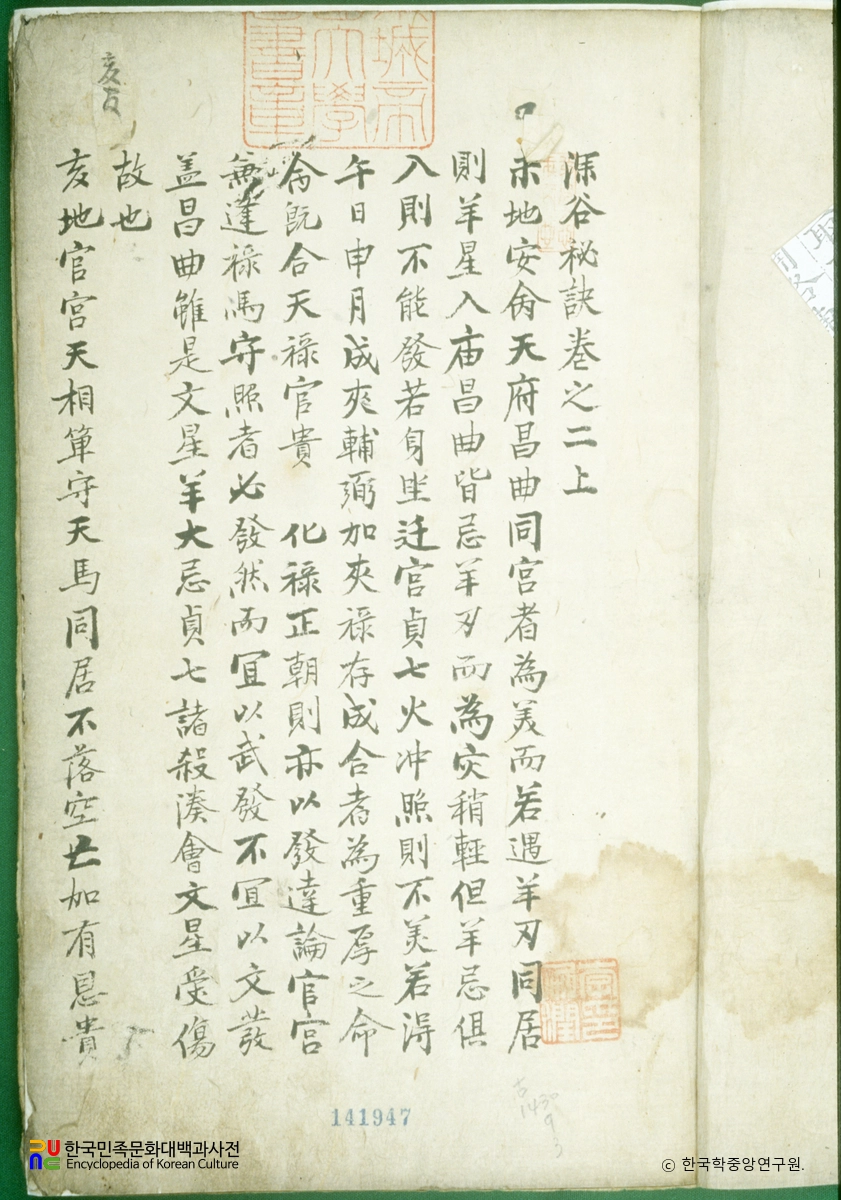 深谷秘訣卷之二上
未地安命天府昌曲同宮者為美而若遇羊刃同居
則羊星入庙昌曲皆忌羊刃而為灾稍輕但羊忌俱
入則不能發若身坐迁宮貞七火冲照則不美若得
午日申月成夾輔弼加夾禄存成合者為重厚之命
命既合天禄官貴 化禄正朝則亦以發達論官宮
兼逢禄馮守照者必發然而宜以武發不宜以文發
盖昌曲雖是文星羊大忌貞七諸殺湊會文星受傷
故也
亥地官宮天相單守天馬同居不落空亡加有恩貴
141947
한국민족문화대백과사전
Encyclopedia of Korean Culture
ⓒ 한국학중앙연구원.